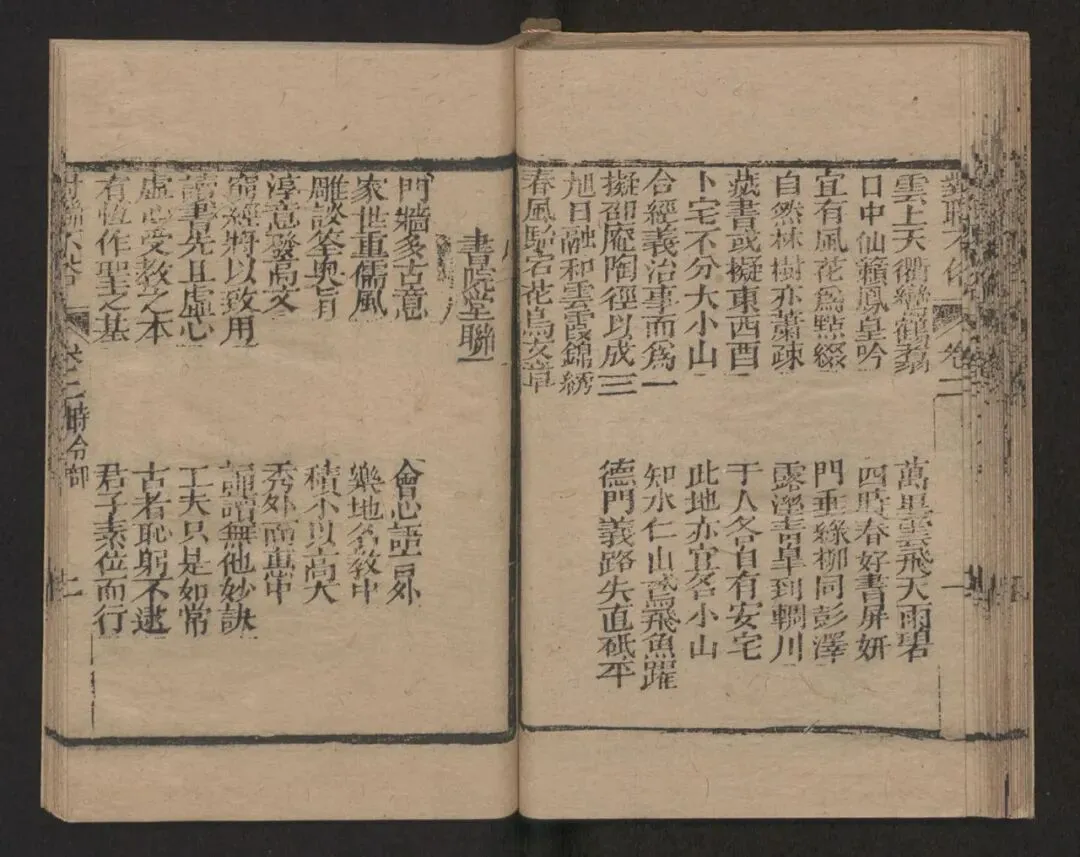 卷二
雲上天衢鸞鶴翥
萬里雲飛天雨碧
口中仙籟鳳皇吟
四時春好書屏妍
宜有風花爲點綴
門垂綠柳同彭澤
自然林樹亦蕭疎
露溼青皐到輞川
藏書或擬東西酉
于人各自有安宅
卜宅不分大小山
此地亦宜名小山
合經義治事而爲一
知水仁山鳶飛魚躍
擬邵庵陶徑以成三
德門義路矢直砥平
旭日融和雲霞錦綉
春風駘宕花鳥文章
書院堂聯
門牆多古意
會心語言外
家世重儒風
樂地名教中
雕談筌奧旨
積小以高大
淳意發高文
秀外而惠中
窮經將以致用
誦讀無他妙訣
讀書先且虛心
工夫只是如常
虛心受教之本
古者恥躬不逮
有恆作聖之基
君子素位而行
卷二時令部